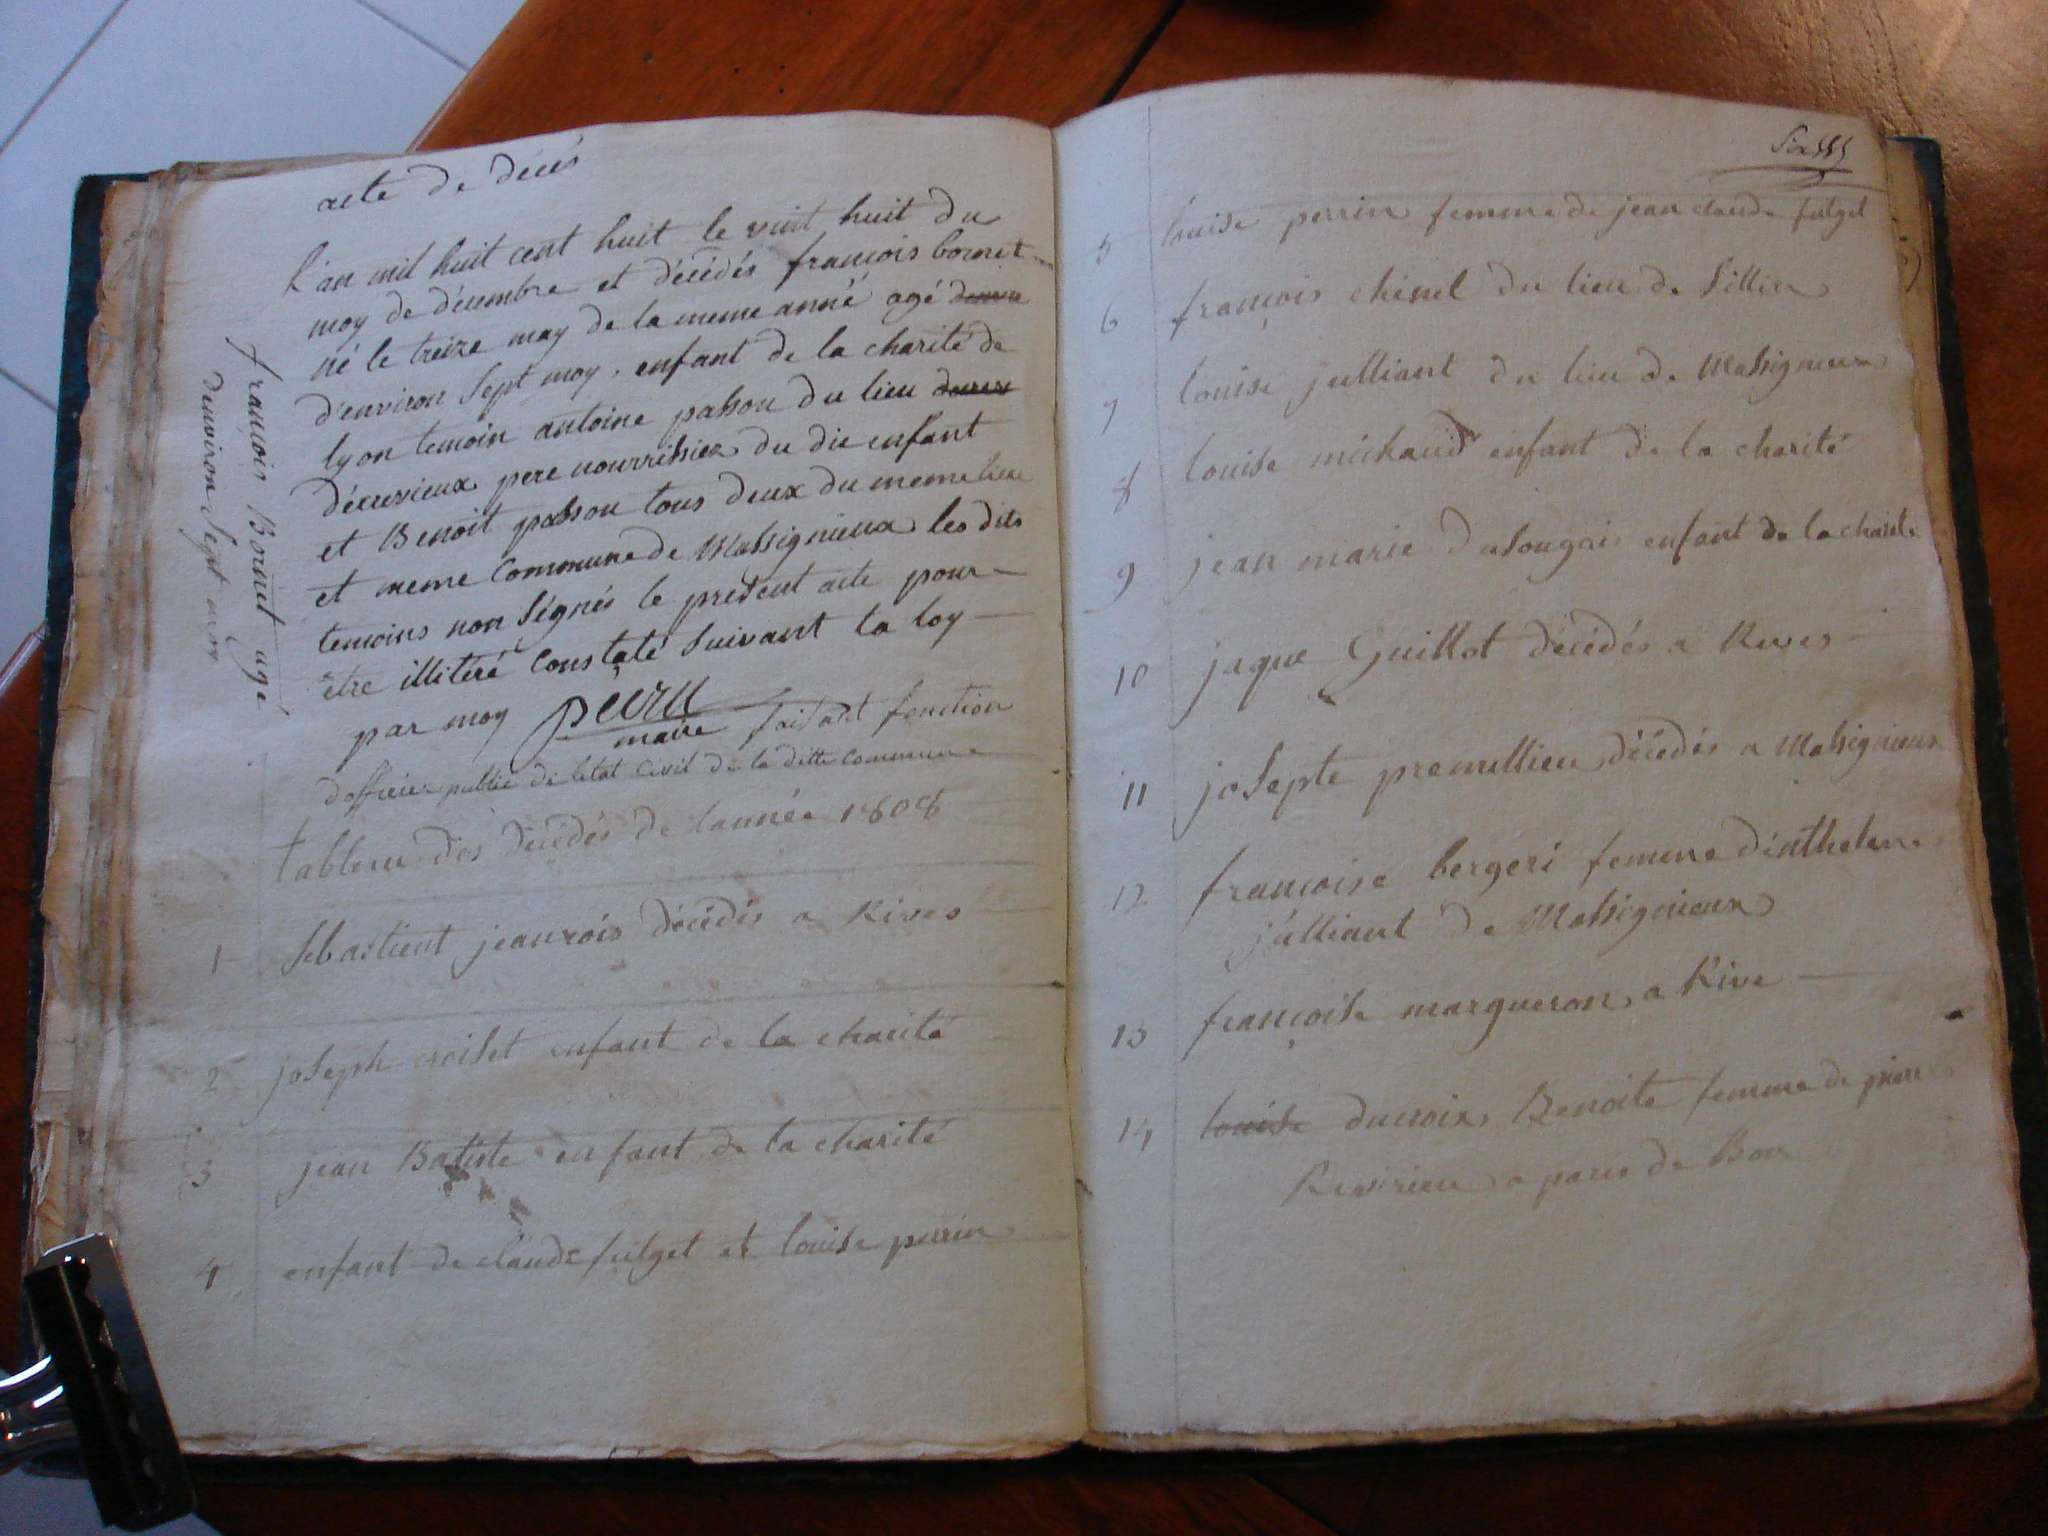 acte de décés
L'an mil huit cent huit le vint huit du
moy de décembre et décédés françois bornet
né le treize may de la meme anné agé
d'environ sept moy, enfant de la charité de
lyon temoin antoine passou du lieu
décrevieux pere nourrissier du dit enfant
et Benoit passou tous deux du meme lieu
et meme commune de Massignieux les dits
temoins non signés le present acte pour
etre illitéré constaté suivant la loy
par moy
maire faisant fonction
d'officier public de letat civil de la ditte commune
françois Bornet agé
denviron sept moy
tableau des décédés de lannée 1808
1 sebastient jeanrois décédés a Rives
2 joseph croiset enfant de la charité
3 jean Batiste enfant de la charité
4 enfant de claude fulget et louise perrin
Six
5 louise perrin femme de jean claude fulget
6 françois chinel du lieu de Sillin
7 louise julliant du lieu de Massignieux
8 louise michaud enfant de la charité
9 jean marie dusougais enfant de la charité
10 jaque Guillot décédés a Rives
11 josepte premillieu décédés a Massignieux
12 francoise bergeri femme d'anthelme
julliant de Massignieux
13 françoise margueron a Rive
14 louise ducroix Benoite femme de pierre
Revirieu a paris de Bon